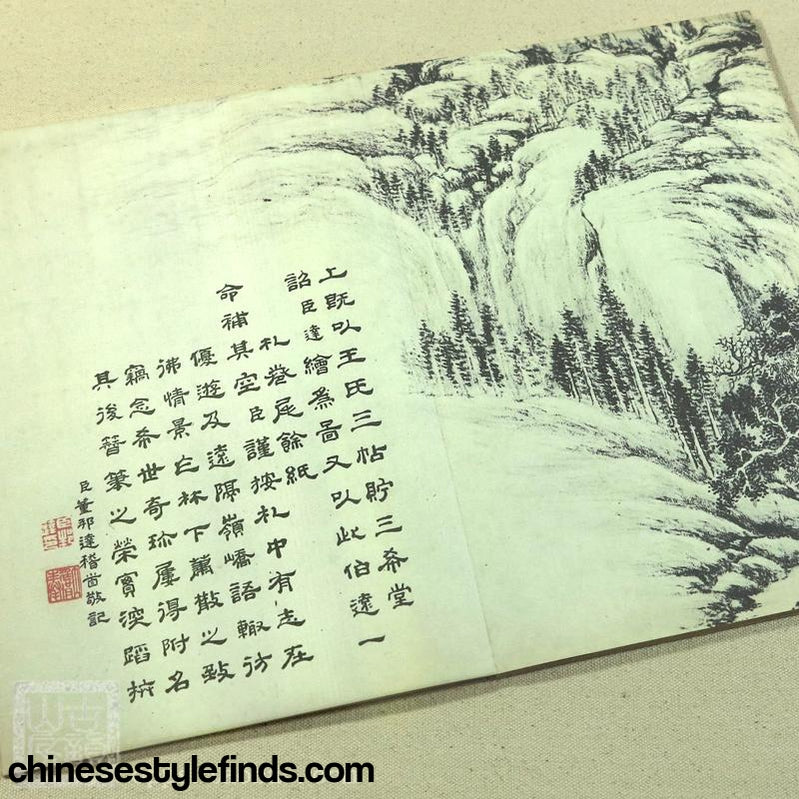 上既以王氏三帖貯三希堂
詔臣達繪為啚又以此伯遠一
札卷尾餘紙
命補其空臣謹按札中有志在
優遊及遠隔嶺嶠語輙彷
彿情景林下蕭散之致
竊念希世奇珎屢得附名
其後簪筆之榮實深蹈抃
臣董邦達稽首敬記
chinesestylefinds.com